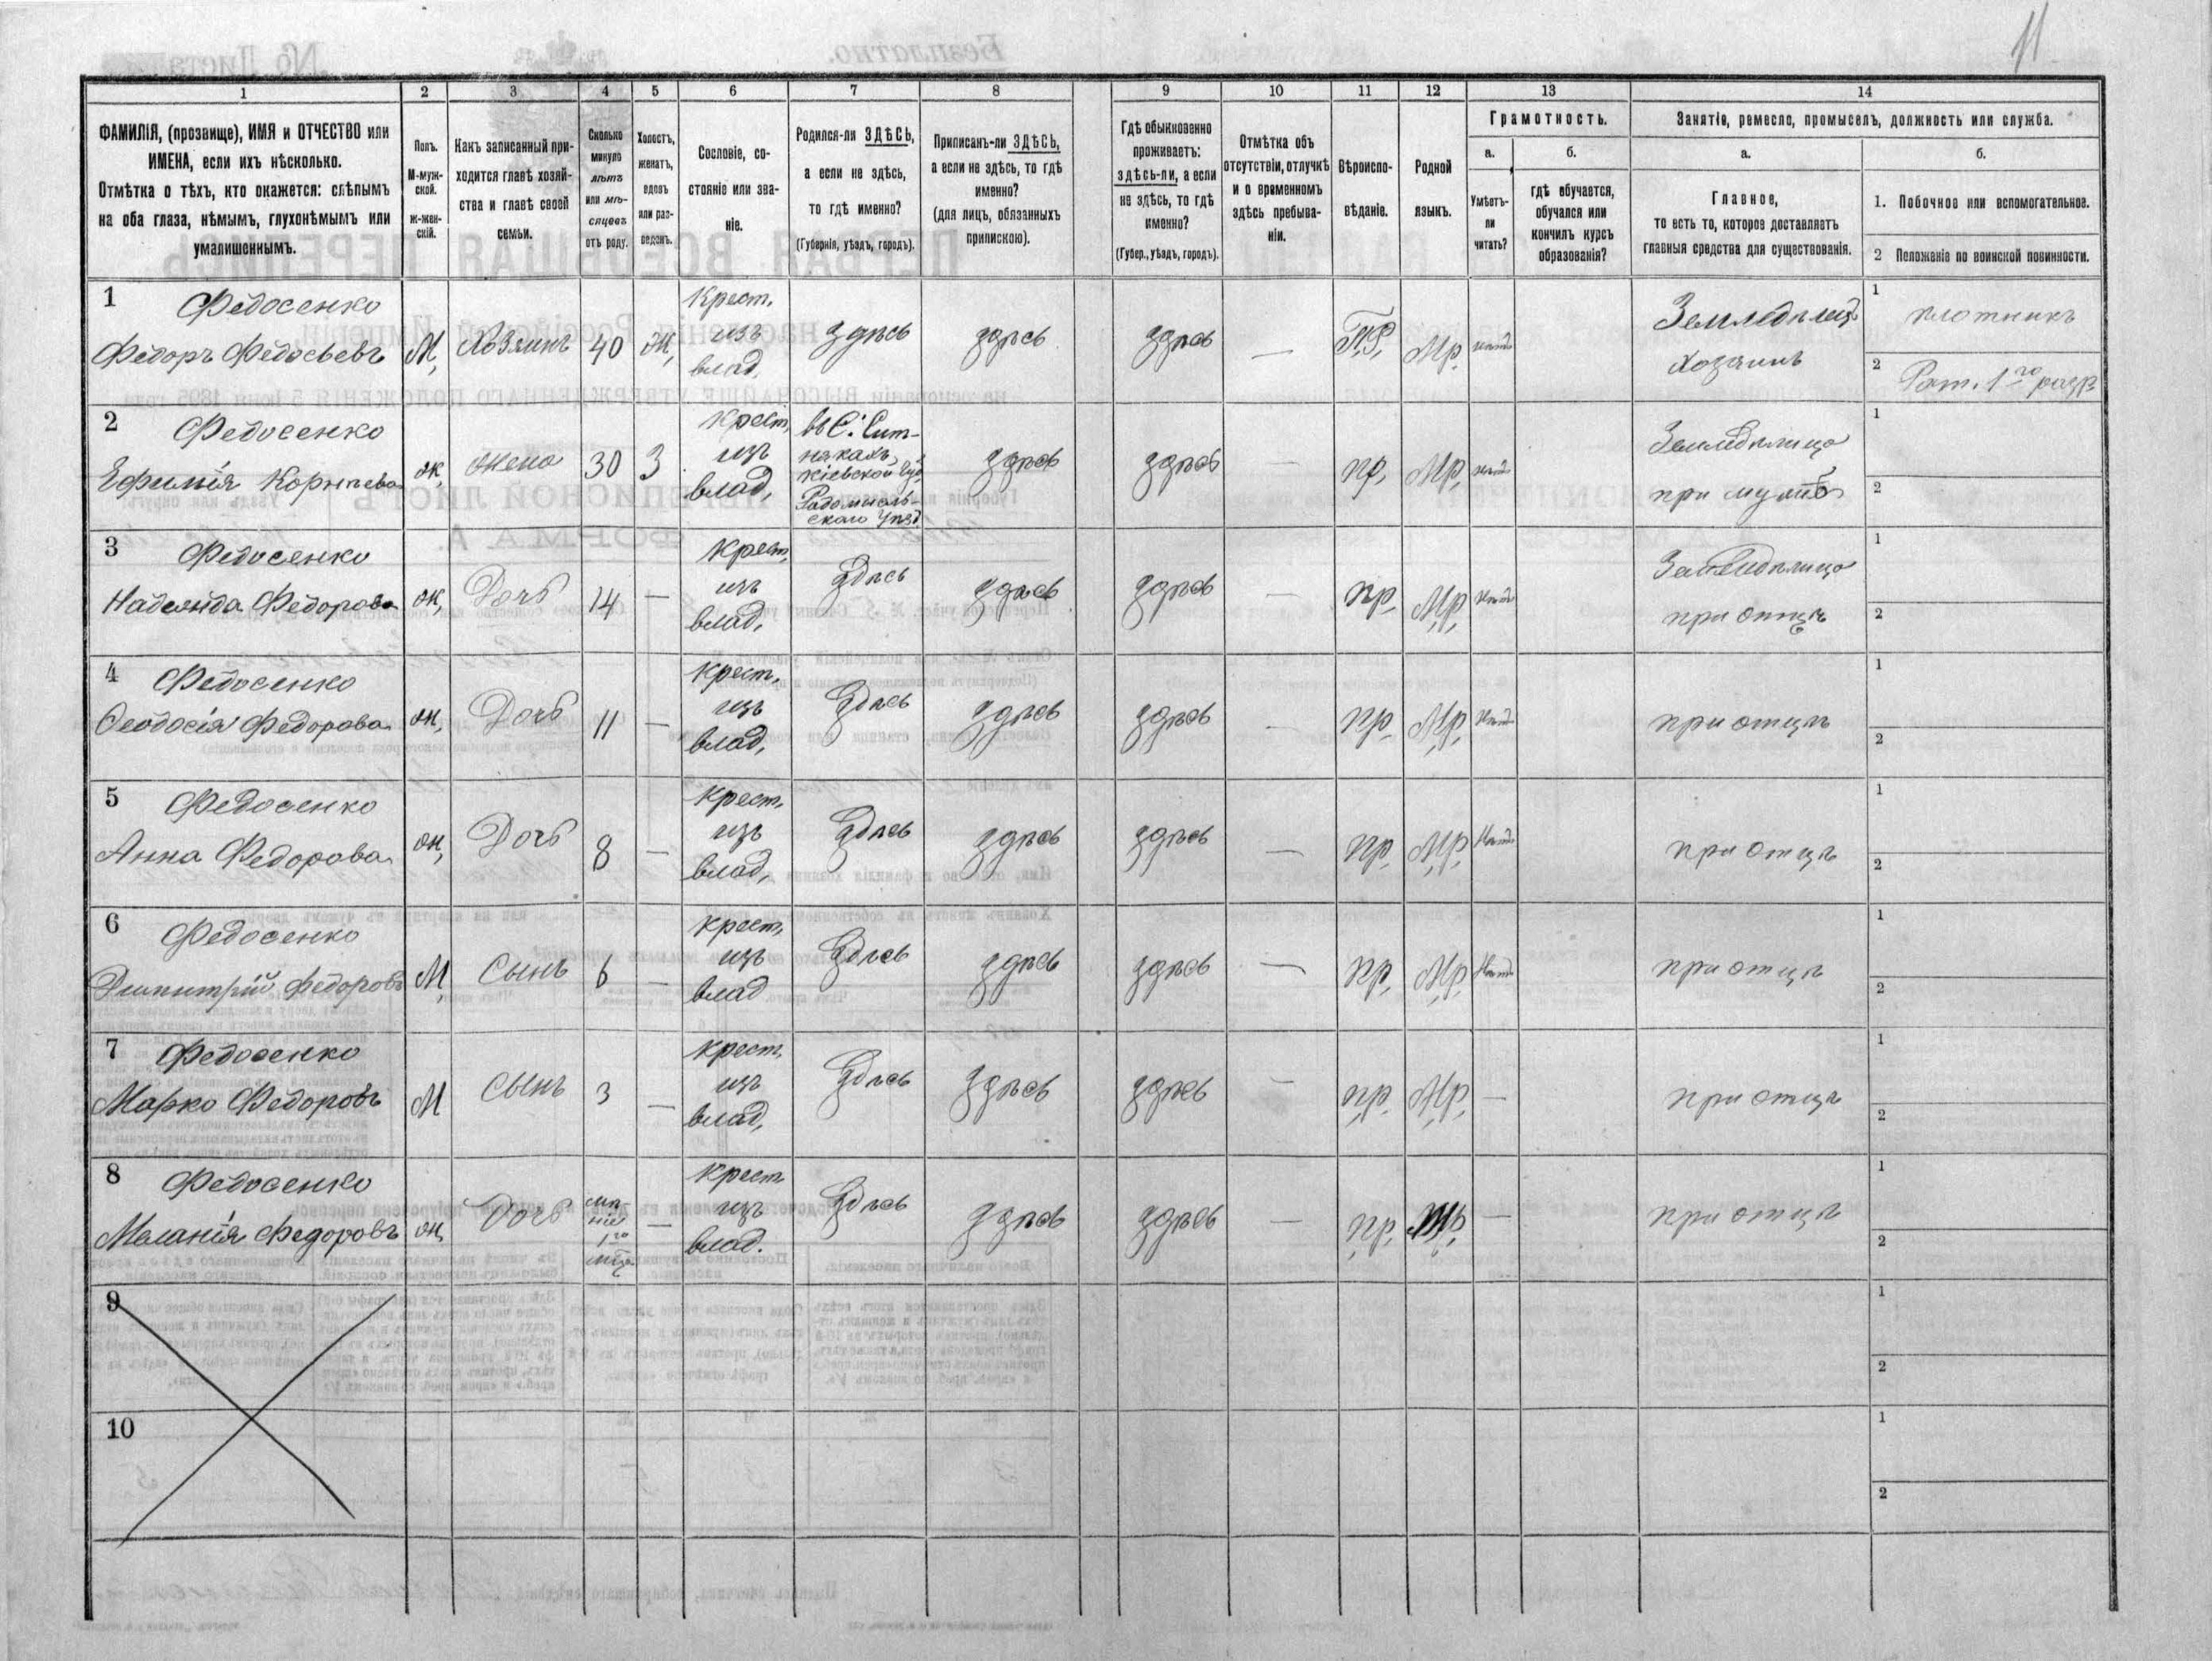 11
1 2 3 4 5 6 7 8 9 10 11 12 13 14
ФАМИЛІЯ, (прозвище), ИМЯ и ОТЧЕСТВО или
ИМЕНА, если ихъ нѣсколько.
Отмѣтка о тѣхъ, кто окажется: слѣпымъ
на оба глаза, нѣмымъ, глухонѣмымъ или
умалишеннымъ.
Полъ.
М-муж-
ской.
ж-жен-
скій.
Какъ записанный при-
ходится главѣ хозяй-
ства и главѣ своей
семьи.
Сколько
минуло
лѣтъ
или мѣ-
сяцевъ
отъ роду.
Холостъ,
женатъ,
вдовъ
или раз-
веденъ.
Сословіе, со-
стояніе или зва-
ніе.
Родился-ли ЗДѢСЬ,
а если не здѣсь,
то гдѣ именно?
(Губернія, уѣздъ, городъ).
Приписанъ-ли ЗДѢСЬ,
а если не здѣсь, то гдѣ
именно?
(для лицъ, обязанныхъ
припискою).
Гдѣ обыкновенно
проживаетъ:
здѣсь-ли, а если
не здѣсь, то гдѣ
именно?
(Губер., уѣздъ, городъ).
Отмѣтка объ
отсутствіи, отлучкѣ
и о временномъ
здѣсь пребыва-
ніи.
Вѣроиспо-
вѣданіе.
Родной
языкъ.
Грамотность.
а.
Умѣетъ-
ли
читать?
б.
гдѣ обучается,
обучался или
кончилъ курсъ
образованія?
Занятіе, ремесло, промыселъ, должность или служба.
а.
Главное,
то есть то, которое доставляетъ
главныя средства для существованія.
б.
1. Побочное или вспомогательное.
2 Положеніе по воинской повинности.
1 Федосенко
Федоръ Федосьевъ
М,
Хозяинъ
40
Ж,
Крест.
изъ
влад,
здѣсь
здѣсь
здѣсь
—
Пр,
Мр.
нѣтъ
Земледѣлец
Хозяинъ
1 плотникъ
2 Рат. 1го разр.
2 Федосенко
Ефимія Корнѣева
ж,
жена
30
З
Крест,
изъ
влад,
въ С. Сит-
някахъ,
Кіевской Губ,
Радомысль-
скаго Уѣзд
здѣсь
здѣсь
—
пр,
Мр,
нѣтъ
Земледѣлица
при мужѣ
1
2
3 Федосенко
Надежда Федорова
ж,
Дочь
14
—
Крест,
изъ
влад,
здѣсь
здѣсь
здѣсь
—
пр,
Мр,
нѣтъ
Земледѣлица
при отцѣ
1
2
4 Федосенко
Ѳеодосія Федорова
ж,
Дочь
11
—
Крест,
изъ
влад,
здѣсь
здѣсь
здѣсь
—
пр,
Мр,
нѣтъ
при отцѣ
1
2
5 Федосенко
Анна Федорова
ж,
Дочь
8
—
Крест,
изъ
влад,
здѣсь
здѣсь
здѣсь
—
пр,
Мр,
нѣтъ
при отцѣ
1
2
6 Федосенко
Димитрій Федоровъ
М,
Сынъ
6
—
Крест,
изъ
влад
здѣсь
здѣсь
здѣсь
—
пр,
Мр,
нѣтъ
при отцѣ
1
2
7 Федосенко
Марко Федоровъ
М
Сынъ
3
—
Крест,
изъ
влад,
здѣсь
здѣсь
здѣсь
—
пр,
Мр,
—
при отцѣ
1
2
8 Федосенко
Меланія Федоровъ
ж,
Дочь
мѣ-
ніе
1го
мѣц
—
Крест
изъ
влад.
здѣсь
здѣсь
здѣсь
—
пр,
Мр,
—
при отцѣ
1
2
9
1
2
10
1
2